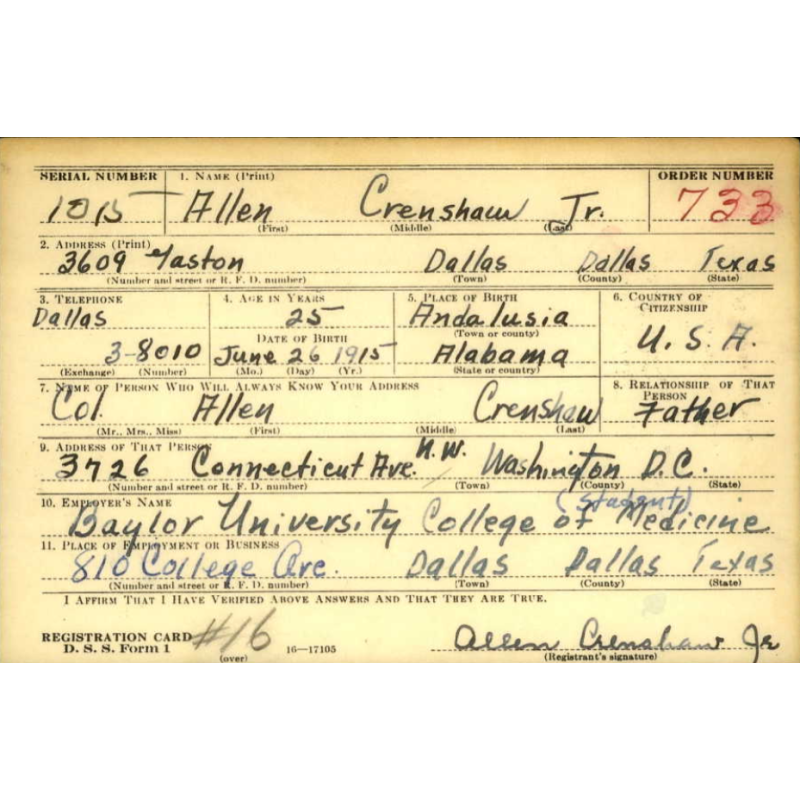 SERIAL NUMBER 1. NAME (Print) ORDER NUMBER
1015 Allen Crenshaw Jr. 733
(First) (Middle) (Last)
2. ADDRESS (Print)
3609 Gaston Dallas Dallas Texas
(Number and street or R. F. D. number) (Town) (County) (State)
3. TELEPHONE 4. AGE IN YEARS 5. PLACE OF BIRTH 6. COUNTRY OF CITIZENSHIP
Dallas 25 Andalusia
DATE OF BIRTH (Town or county) U. S. A.
3-8010 June 26 1915 Alabama
(Exchange) (Number) (Mo.) (Day) (Yr.) (State or country)
7. NAME OF PERSON WHO WILL ALWAYS KNOW YOUR ADDRESS 8. RELATIONSHIP OF THAT PERSON
Col. Allen Crenshaw Father
(Mr., Mrs., Miss) (First) (Middle) (Last)
9. ADDRESS OF THAT PERSON
3726 Connecticut Ave. N.W. Washington D.C.
(Number and street or R. F. D. number) (Town) (County) (State)
10. EMPLOYER'S NAME (Student)
Baylor University College of Medicine
11. PLACE OF EMPLOYMENT OR BUSINESS
810 College Ave. Dallas Dallas Texas
(Number and street or R. F. D. number) (Town) (County) (State)
I AFFIRM THAT I HAVE VERIFIED ABOVE ANSWERS AND THAT THEY ARE TRUE.
REGISTRATION CARD #16 Allen Crenshaw Jr
D. S. S. Form 1 (over) 16—17105 (Registrant's signature)